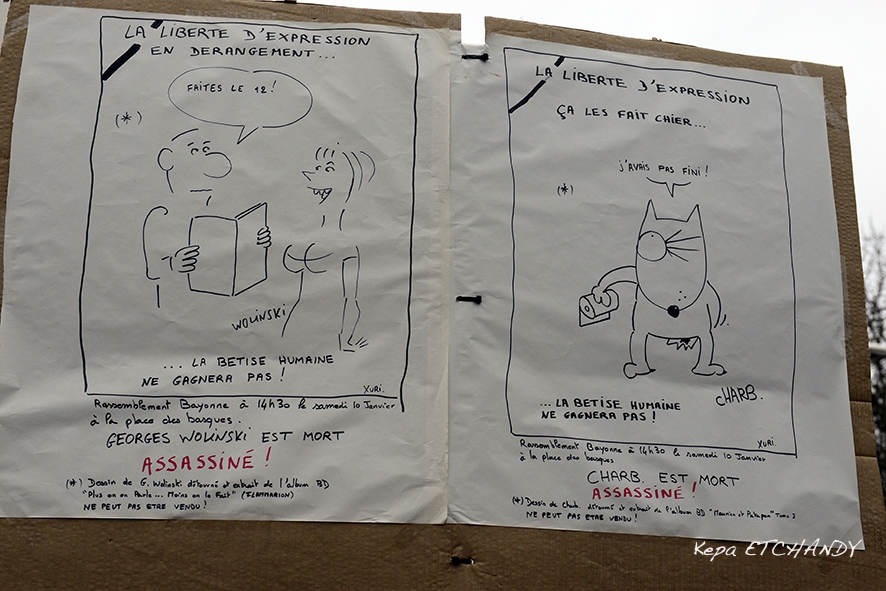 LA LIBERTE D'EXPRESSION
EN DERANGEMENT...
FAITES LE 12 !
(*)
WOLINSKI
... LA BETISE HUMAINE
NE GAGNERA PAS !
XURI.
Rassemblement Bayonne à 14h30 le samedi 10 Janvier
à la place des basques.
GEORGES WOLINSKI EST MORT
ASSASSINÉ !
(*) Dessin de G. Wolinski détourné et extrait de l'album BD
"Plus on en Parle... Moins on le Fait" (FLAMMARION)
NE PEUT PAS ETRE VENDU !
LA LIBERTE D'EXPRESSION
ÇA LES FAIT CHIER...
J'AVAIS PAS FINI !
(*)
CHARB.
...LA BETISE HUMAINE
NE GAGNERA PAS !
XURI.
Rassemblement Bayonne à 14h30 le samedi 10 Janvier
à la place des basques
CHARB. EST MORT
ASSASSINÉ !
(*) Dessin de Charb. détourné et extrait de l'album BD "Maurice et Patapon" Tome
NE PEUT PAS ETRE VENDU !
Kepa ETCHANDY